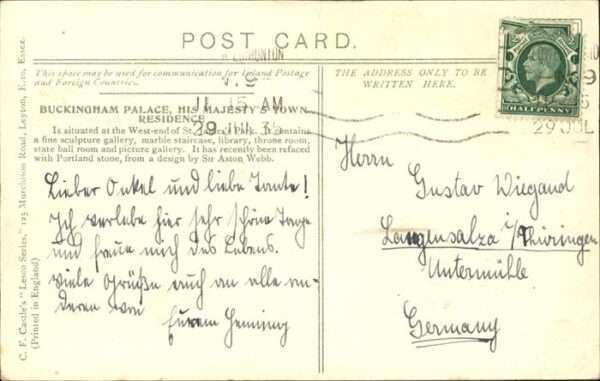 POST CARD.
This space may be used for communication for Inland Postage
and Foreign Countries.
THE ADDRESS ONLY TO BE
WRITTEN HERE.
EDMONTON
11 15 AM
29 JUL
HALFPENNY
29 JUL
BUCKINGHAM PALACE, HIS MAJESTY'S TOWN
RESIDENCE
Is situated at the West-end of St. James's Park. It contains
a fine sculpture gallery, marble staircase, library, throne room,
state ball room and picture room. It has recently been refaced
with Portland stone, from a design by Sir Aston Webb.
Lieber Onkel und liebe Tante!
Ich verlebe hier sehr schöne Tage
und freue mich des Lebens.
Viele Grüße auch an alle an-
deren von
Eurem Henning
Herrn
Gustav Wiegand
Langensalza i/Thüringen
Untermühle
Germany
C. F. Castle's "Lesco Series," 125 Murchison Road, Leyton, E.10, Essex.
(Printed in England)